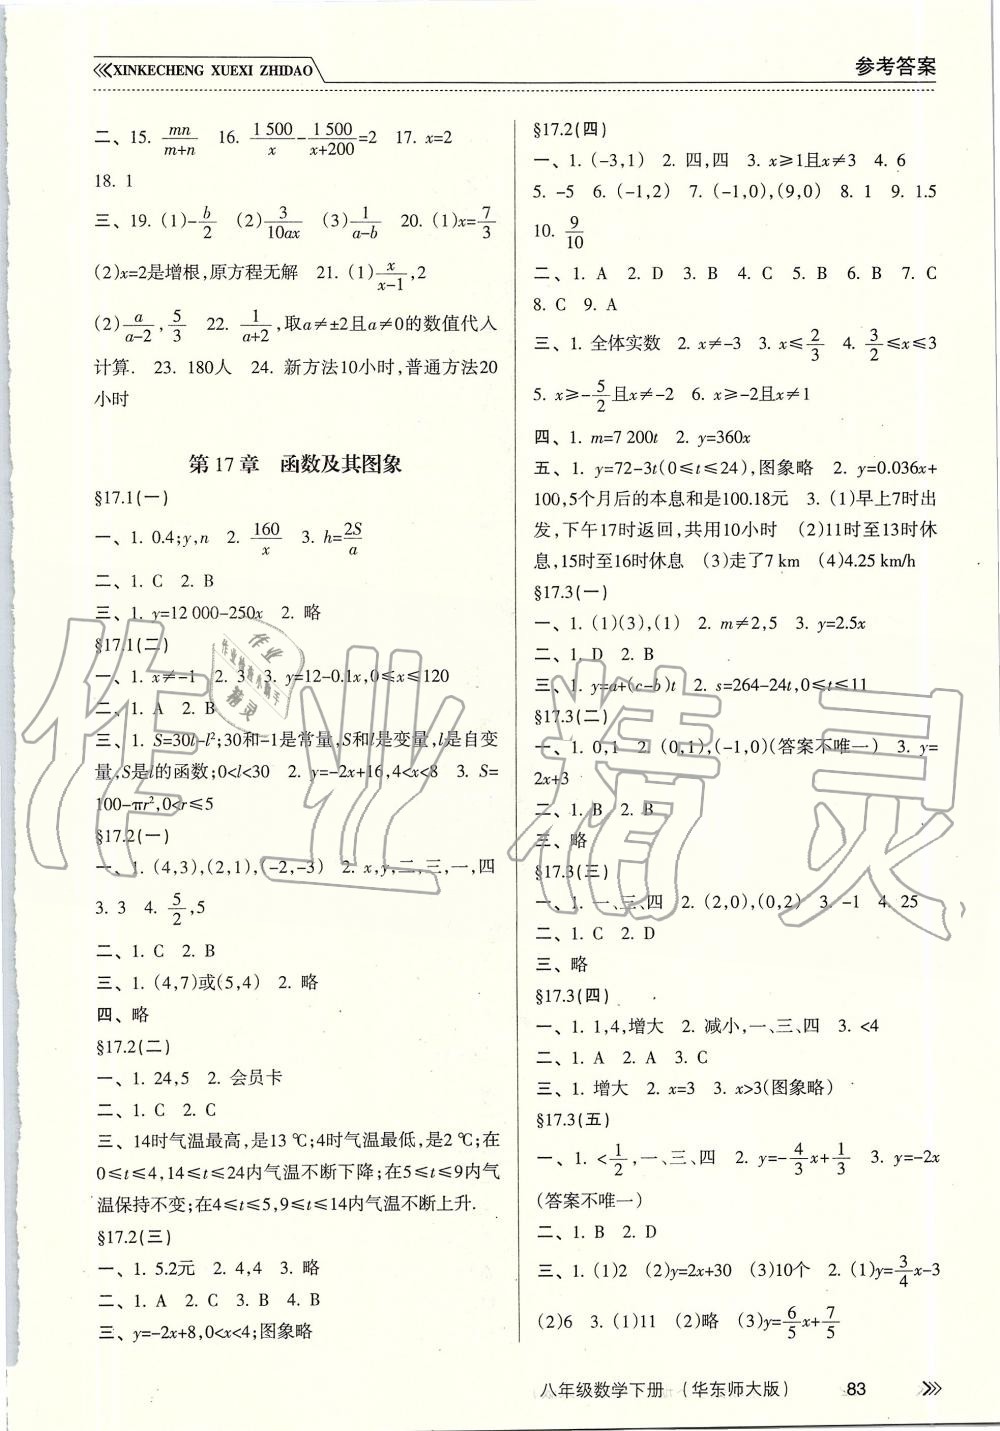 XINKECHENG XUEXI ZHIDAO
参考答案
二、15. mn/(m+n) 16. 1 500/x-1 500/(x+200)=2 17. x=2
18. 1
三、19. (1)-b/2 (2)3/(10ax) (3)1/(a-b) 20. (1)x=7/3
(2)x=2是增根,原方程无解 21. (1)x/(x-1),2
(2)a/(a-2),5/3 22. 1/(a+2),取a≠±2且a≠0的数值代入
计算. 23. 180人 24. 新方法10小时,普通方法20
小时
第17章 函数及其图象
§17.1(一)
一、1. 0.4;y,n 2. 160/x 3. h=2S/a
二、1. C 2. B
三、1. y=12 000-250x 2. 略
§17.1(二)
一、1. x≠-1 2. 3 3. y=12-0.1x,0≤x≤120
二、1. A 2. B
三、1. S=30l-l²;30和-1是常量,S和l是变量,l是自变
量,S是l的函数;0<l<30 2. y=-2x+16,4<x<8 3. S=
100-πr²,0<r≤5
§17.2(一)
一、1. (4,3),(2,1),(-2,-3) 2. x,y,二,三,一,四
3. 3 4. 5/2,5
二、1. C 2. B
三、1. (4,7)或(5,4) 2. 略
四、略
§17.2(二)
一、1. 24,5 2. 会员卡
二、1. C 2. C
三、14时气温最高,是13 ℃;4时气温最低,是2 ℃;在
0≤t≤4,14≤t≤24内气温不断下降;在5≤t≤9内气
温保持不变;在4≤t≤5,9≤t≤14内气温不断上升.
§17.2(三)
一、1. 5.2元 2. 4,4 3. 略
二、1. A 2. C 3. B 4. B
三、y=-2x+8,0<x<4;图象略
§17.2(四)
一、1. (-3,1) 2. 四,四 3. x≥1且x≠3 4. 6
5. -5 6. (-1,2) 7. (-1,0),(9,0) 8. 1 9. 1.5
10. 9/10
二、1. A 2. D 3. B 4. C 5. B 6. B 7. C
8. C 9. A
三、1. 全体实数 2. x≠-3 3. x≤2/3 4. 3/2≤x≤3
5. x≥-5/2且x≠-2 6. x≥-2且x≠1
四、1. m=7 200t 2. y=360x
五、1. y=72-3t(0≤t≤24),图象略 2. y=0.036x+
100,5个月后的本息和是100.18元 3. (1)早上7时出
发,下午17时返回,共用10小时 (2)11时至13时休
息,15时至16时休息 (3)走了7 km (4)4.25 km/h
§17.3(一)
一、1. (1)(3),(1) 2. m≠2,5 3. y=2.5x
二、1. D 2. B
三、1. y=a+(c-b)t 2. s=264-24t,0≤t≤11
§17.3(二)
一、1. 0,1 2. (0,1),(-1,0)(答案不唯一) 3. y=
2x+3
二、1. B 2. B
三、略
§17.3(三)
一、1. 一、三、四 2. (2,0),(0,2) 3. -1 4. 25
二、1. C 2. D
三、略
§17.3(四)
一、1. 1,4,增大 2. 减小,一、三、四 3. <4
二、1. A 2. A 3. C
三、1. 增大 2. x=3 3. x>3(图象略)
§17.3(五)
一、1. <1/2,一、三、四 2. y=-4/3x+1/3 3. y=-2x
(答案不唯一)
二、1. B 2. D
三、1. (1)2 (2)y=2x+30 (3)10个 2. (1)y=3/4x-3
(2)6 3. (1)11 (2)略 (3)y=6/5x+7/5
八年级数学下册 (华东师大版) 83
作业精灵
作业
精灵